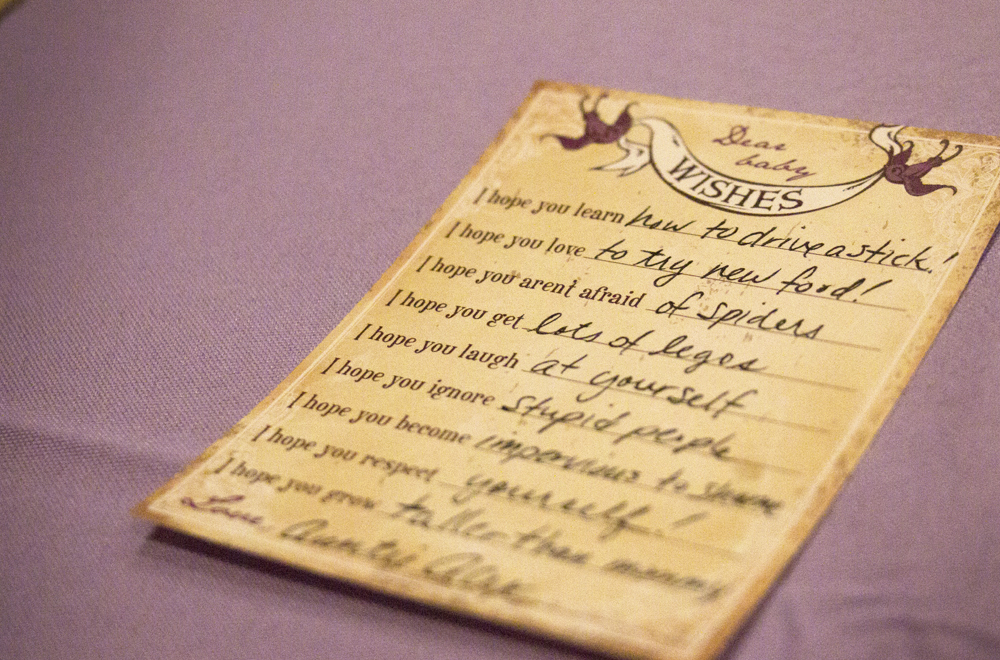 Dear
baby
WISHES
I hope you learn how to drive a stick!
I hope you love to try new food!
I hope you arent afraid of spiders
I hope you get lots of legos
I hope you laugh at yourself
I hope you ignore stupid people
I hope you become impervious to shame
I hope you respect yourself!
I hope you grow taller than mommy
Love, Aunty Alex